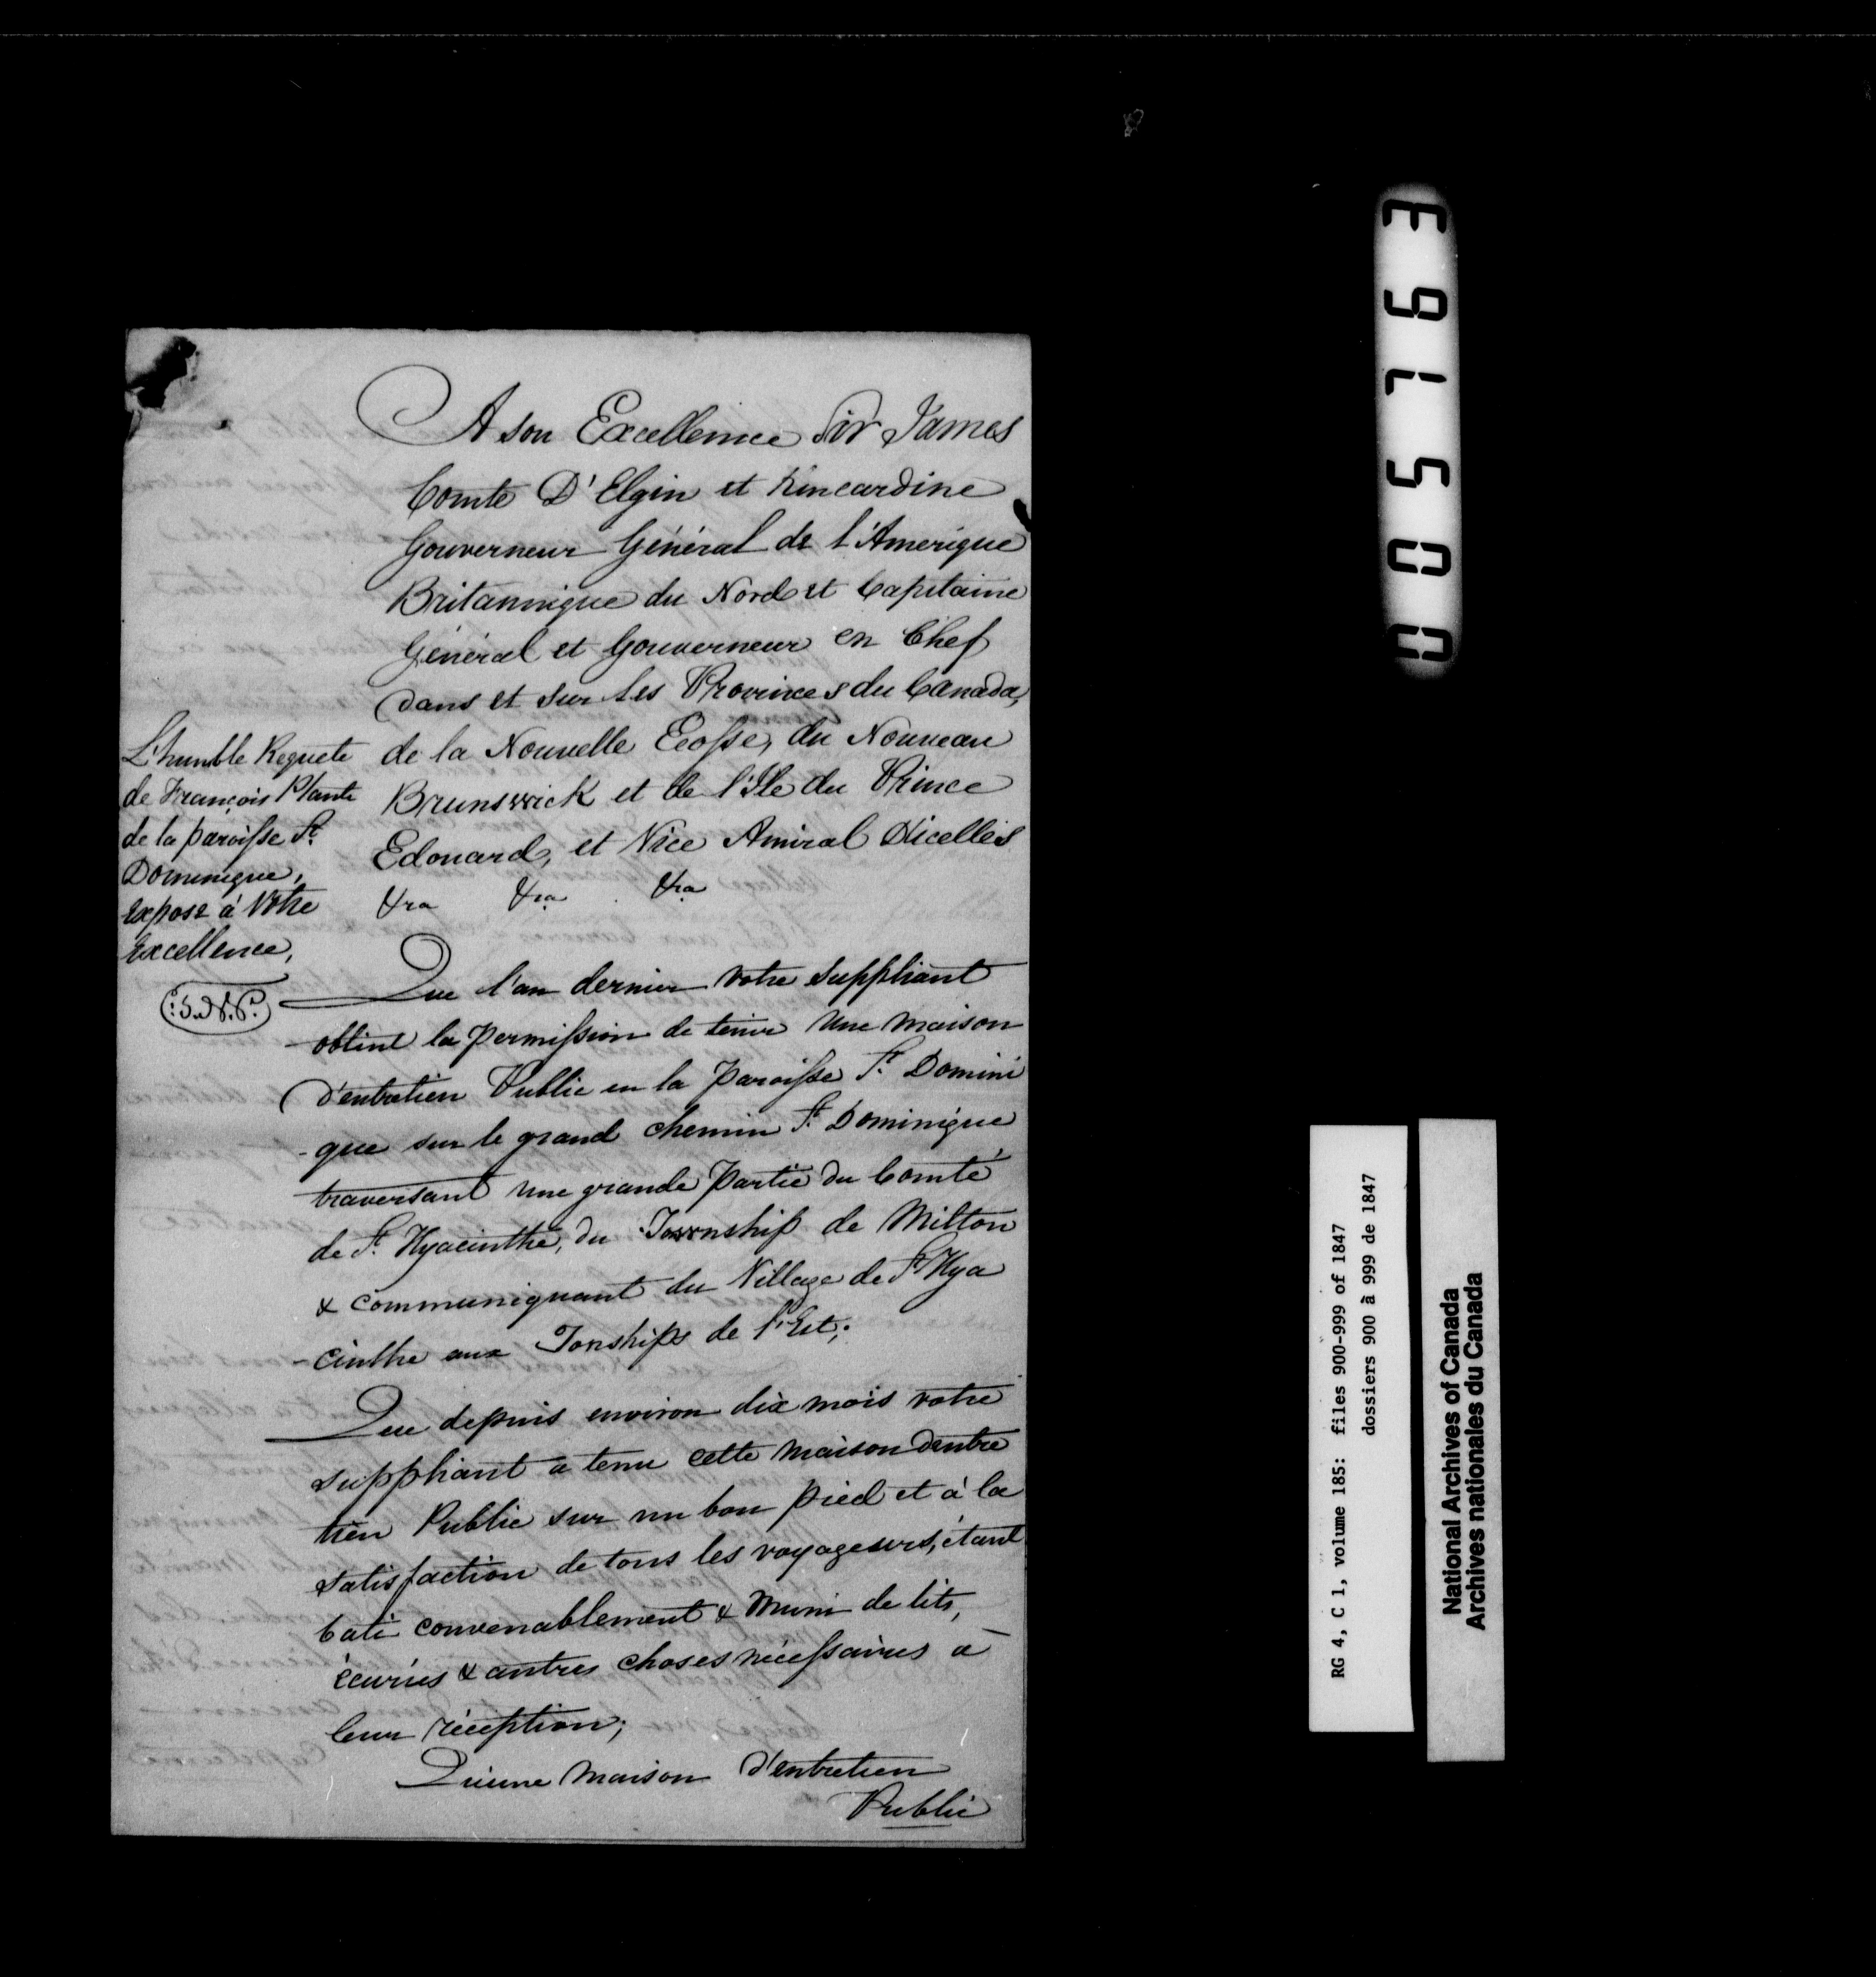 A son Excellence Sir James
Comte D'Elgin et Kincardine
Gouverneur Général de l'Amerique
Britannique du Nord et Capitaine
Général et Gouverneur en Chef
dans et sur les Provinces du Canada,
de la Nouvelle Ecosse, du Nouveau
Brunswick et de l'Ile du Prince
Edouard, et Vice Amiral D'icelles
&ra &ra &ra
L'humble Requete
de François Plante
de la paroisse St.
Dominique,
expose à Votre
Excellence,
Que l'an dernier votre suppliant
obtint la permission de tenir une maison
d'entretien Public en la paroisse St. Domini
-que sur le grand chemin St. Dominique
traversant une grande partie du Comté
de St. Hyacinthe, du Township de Milton
& communiquant du Village de St Hya
-cinthe aux Tonships de l'Est;
Que depuis environ dix mois votre
suppliant a tenu cette maison d'entre
tien Public sur un bon pied et à la
satisfaction de tous les voyageurs, étant
bati convenablement & muni de lits,
écuries & autres choses nécessaires à
leur réception;
Qu'une maison d'entretien
Public
005763
RG 4, C 1, volume 185: files 900-999 of 1847
dossiers 900 à 999 de 1847
National Archives of Canada
Archives nationales du Canada